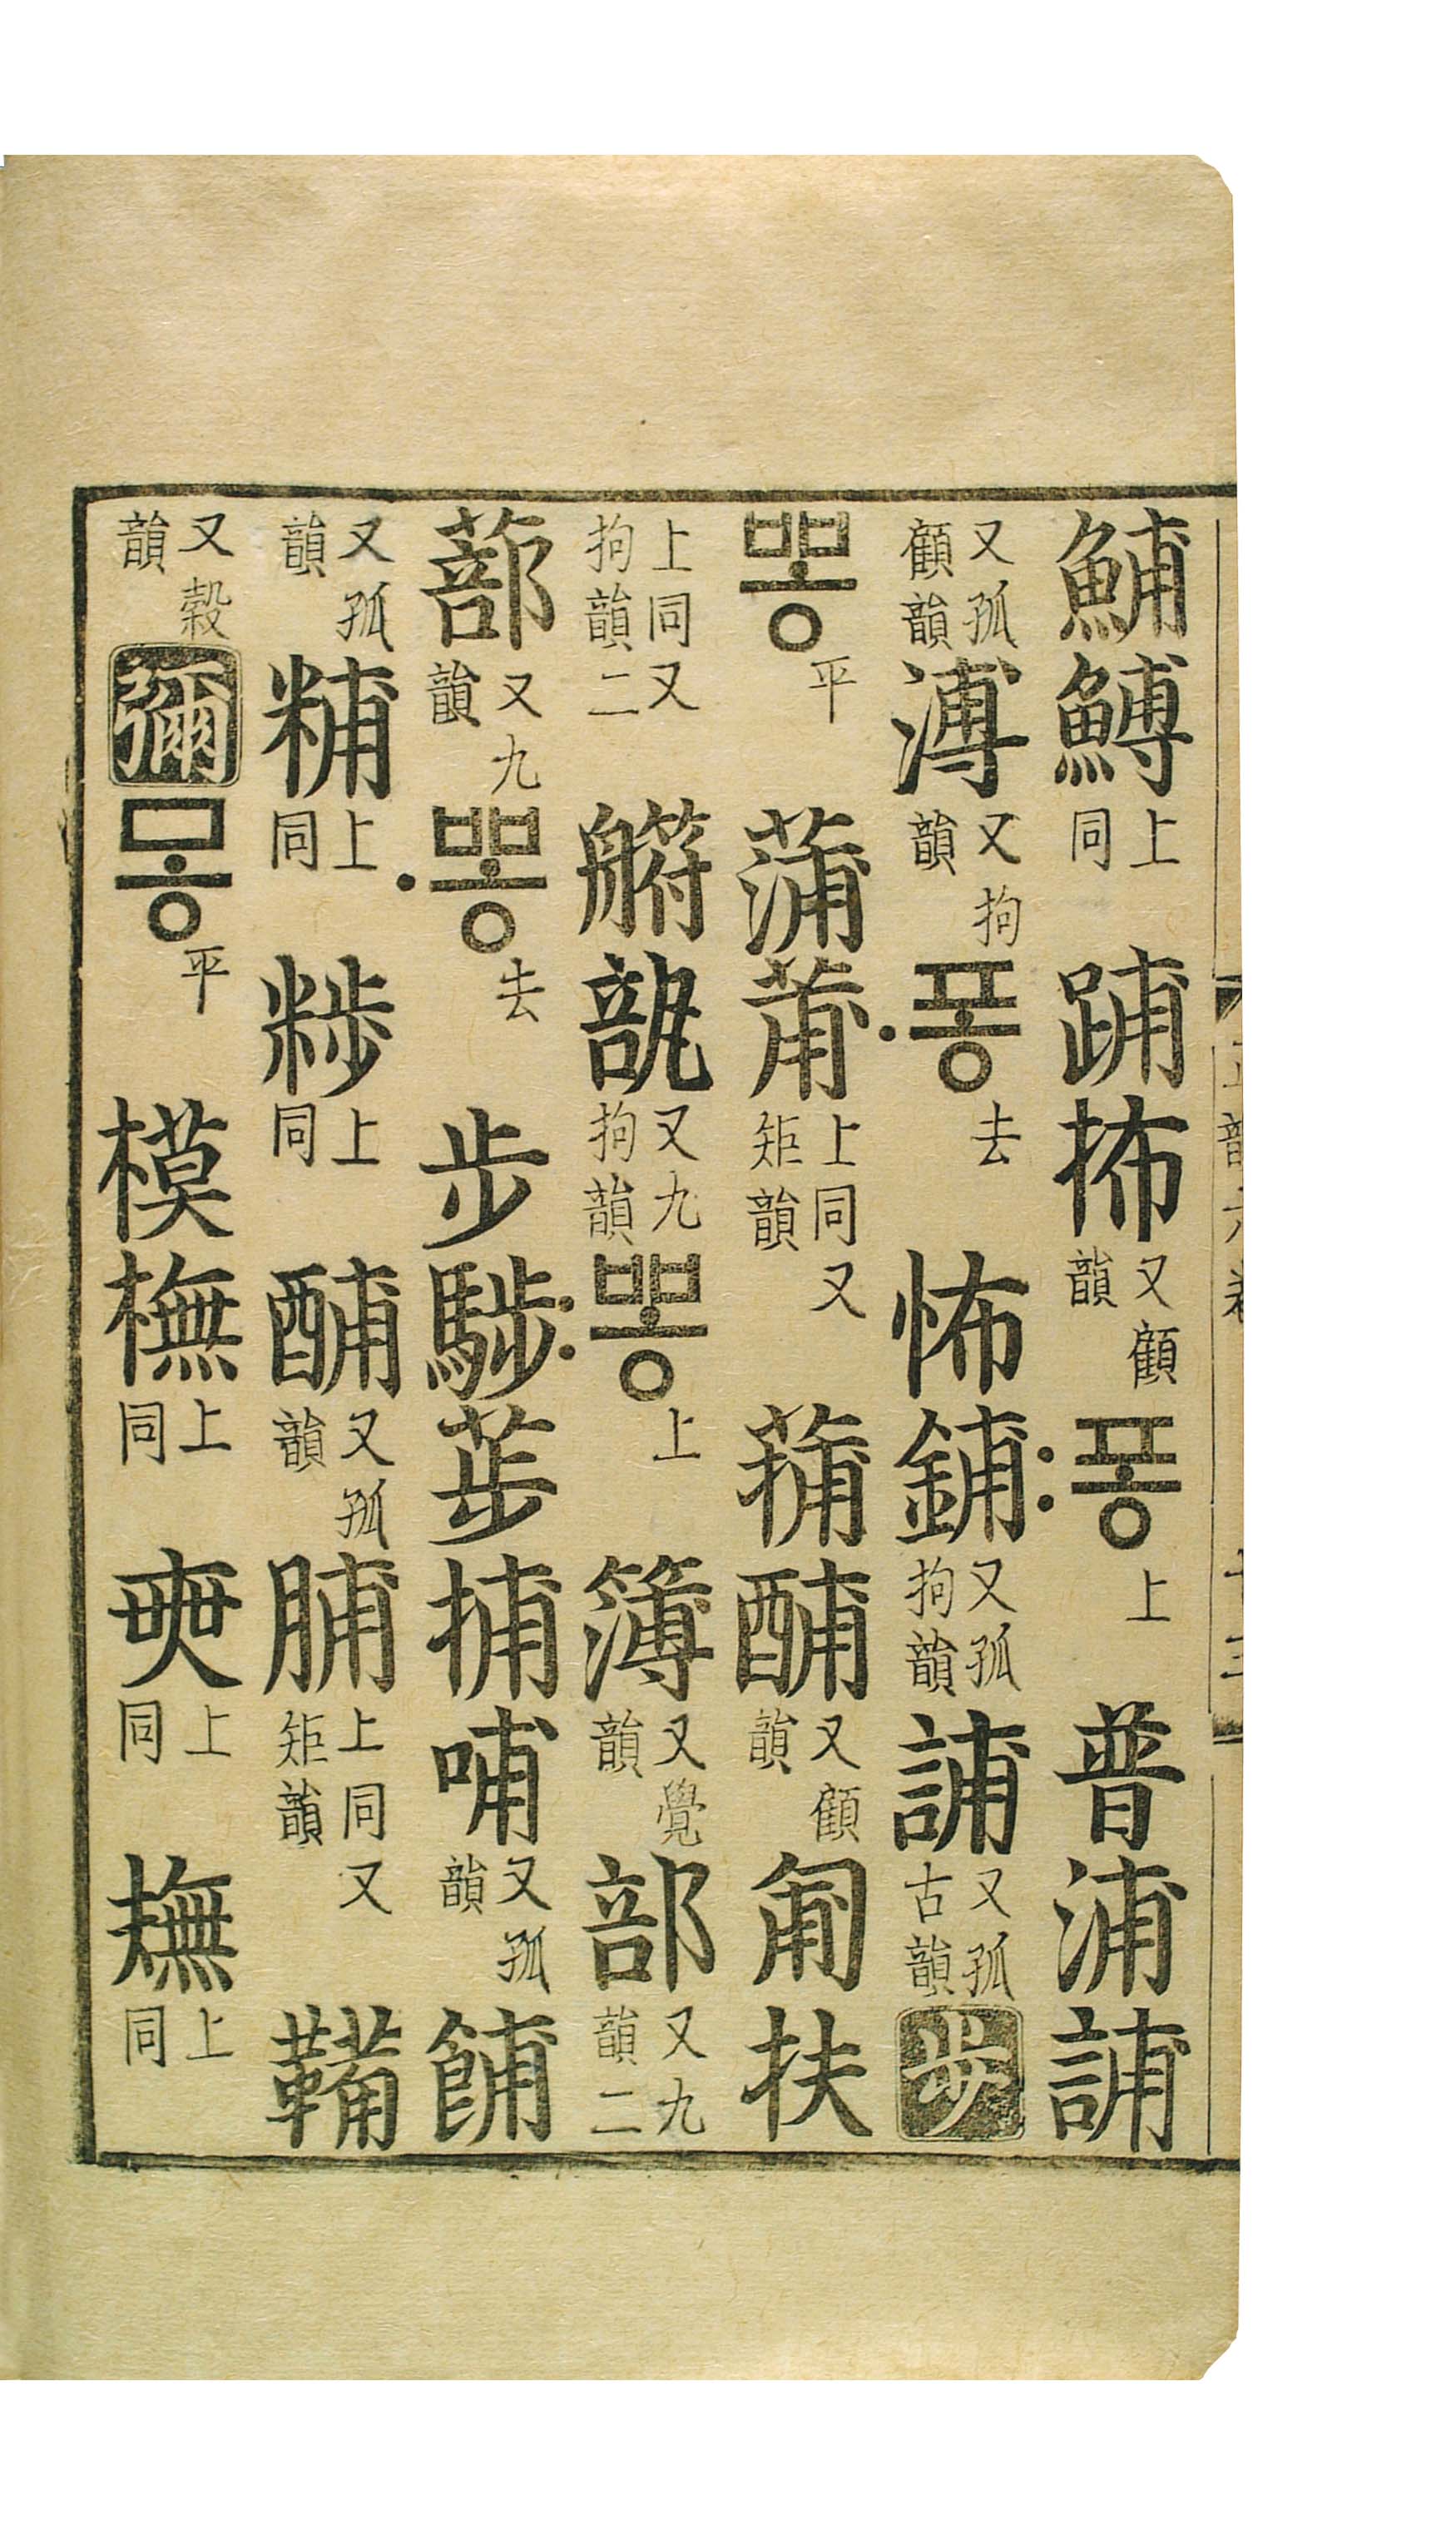 鯆𩺷上同𨁏抪又顧韻:퐁上普浦誧
又孤顧韻溥又拘韻·퐁去怖鋪又孤拘韻誧又孤古韻步
뽕平蒲莆上同又矩韻蒱酺又顧韻匍扶
上同又拘韻二瓿又九拘韻:뽕上簿又覺韻部又九韻二
蔀又九韻·뽕去步荹捕哺又孤韻餔
又孤韻䊇上同上同酺又孤韻脯上同又矩韻鞴
又穀韻彌몽平模橅上同上同上同